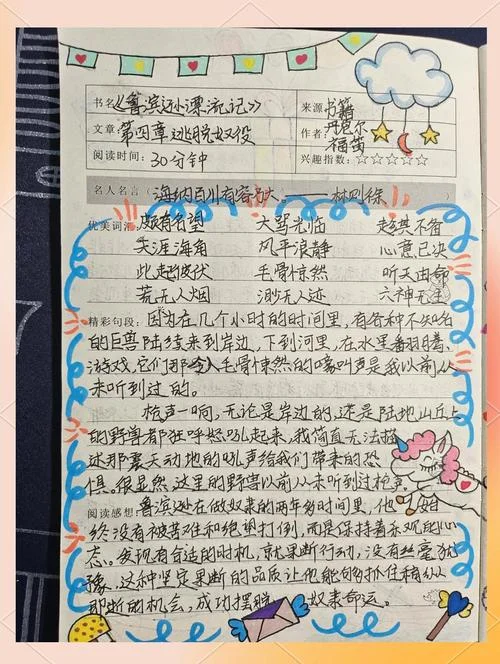 书名《鲁滨逊漂流记》
来源书籍
文章：第四章逃脱奴役
作者：丹尼尔福笛
阅读时间：30分钟
兴趣指数：☆☆☆☆☆
名人名言（海纳百川有容乃大——林则徐
优美词汇 颇有名望 大驾光临 趁其不备
天涯海角 风平浪静 心意已决
此起彼伏 毛骨悚然 听天由命
荒无人烟 渺无人迹 六神无主
精彩句段：因为在几个小时的时间里，有各种不知名
的巨兽陆续来到岸边，下到河里，在水里翻羽腾
游戏，它们那令人毛骨悚然的嚎叫声是我以前从
来听到过的。
枪声一响，无论是岸边的，还是陆地山丘上
的野兽都狂呼怒吼起来，我简直无法描
述那震天动地的吼声给我们带来的恐
惧。很显然，这里的野兽以前从来听到过枪声
阅读感想：鲁滨逊在做奴隶的两年多时间里，他始
终没有被苦难和绝望打倒，而是保持着乐观的心
态。发现有合适的时机，就果断行动，没有丝毫犹
豫，这种坚定果断的品质让他能够抓住稍纵
即逝的机会，成功摆脱奴隶命运。